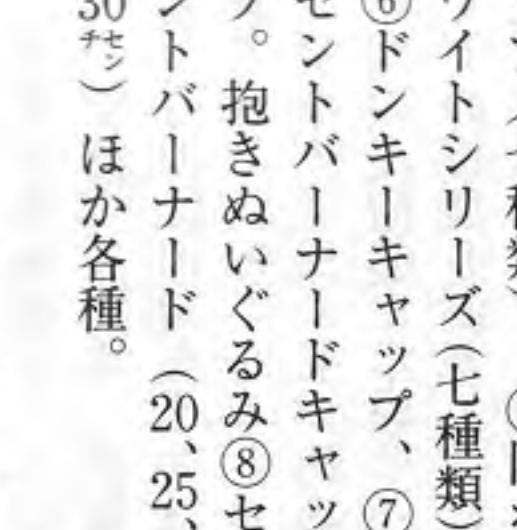 ワイトシリーズ(七種類)
⑥ドンキーキャップ、⑦
セントバーナードキャッ
プ。抱きぬいぐるみ⑧セ
ントバーナード(20、25、
30センチ)ほか各種。